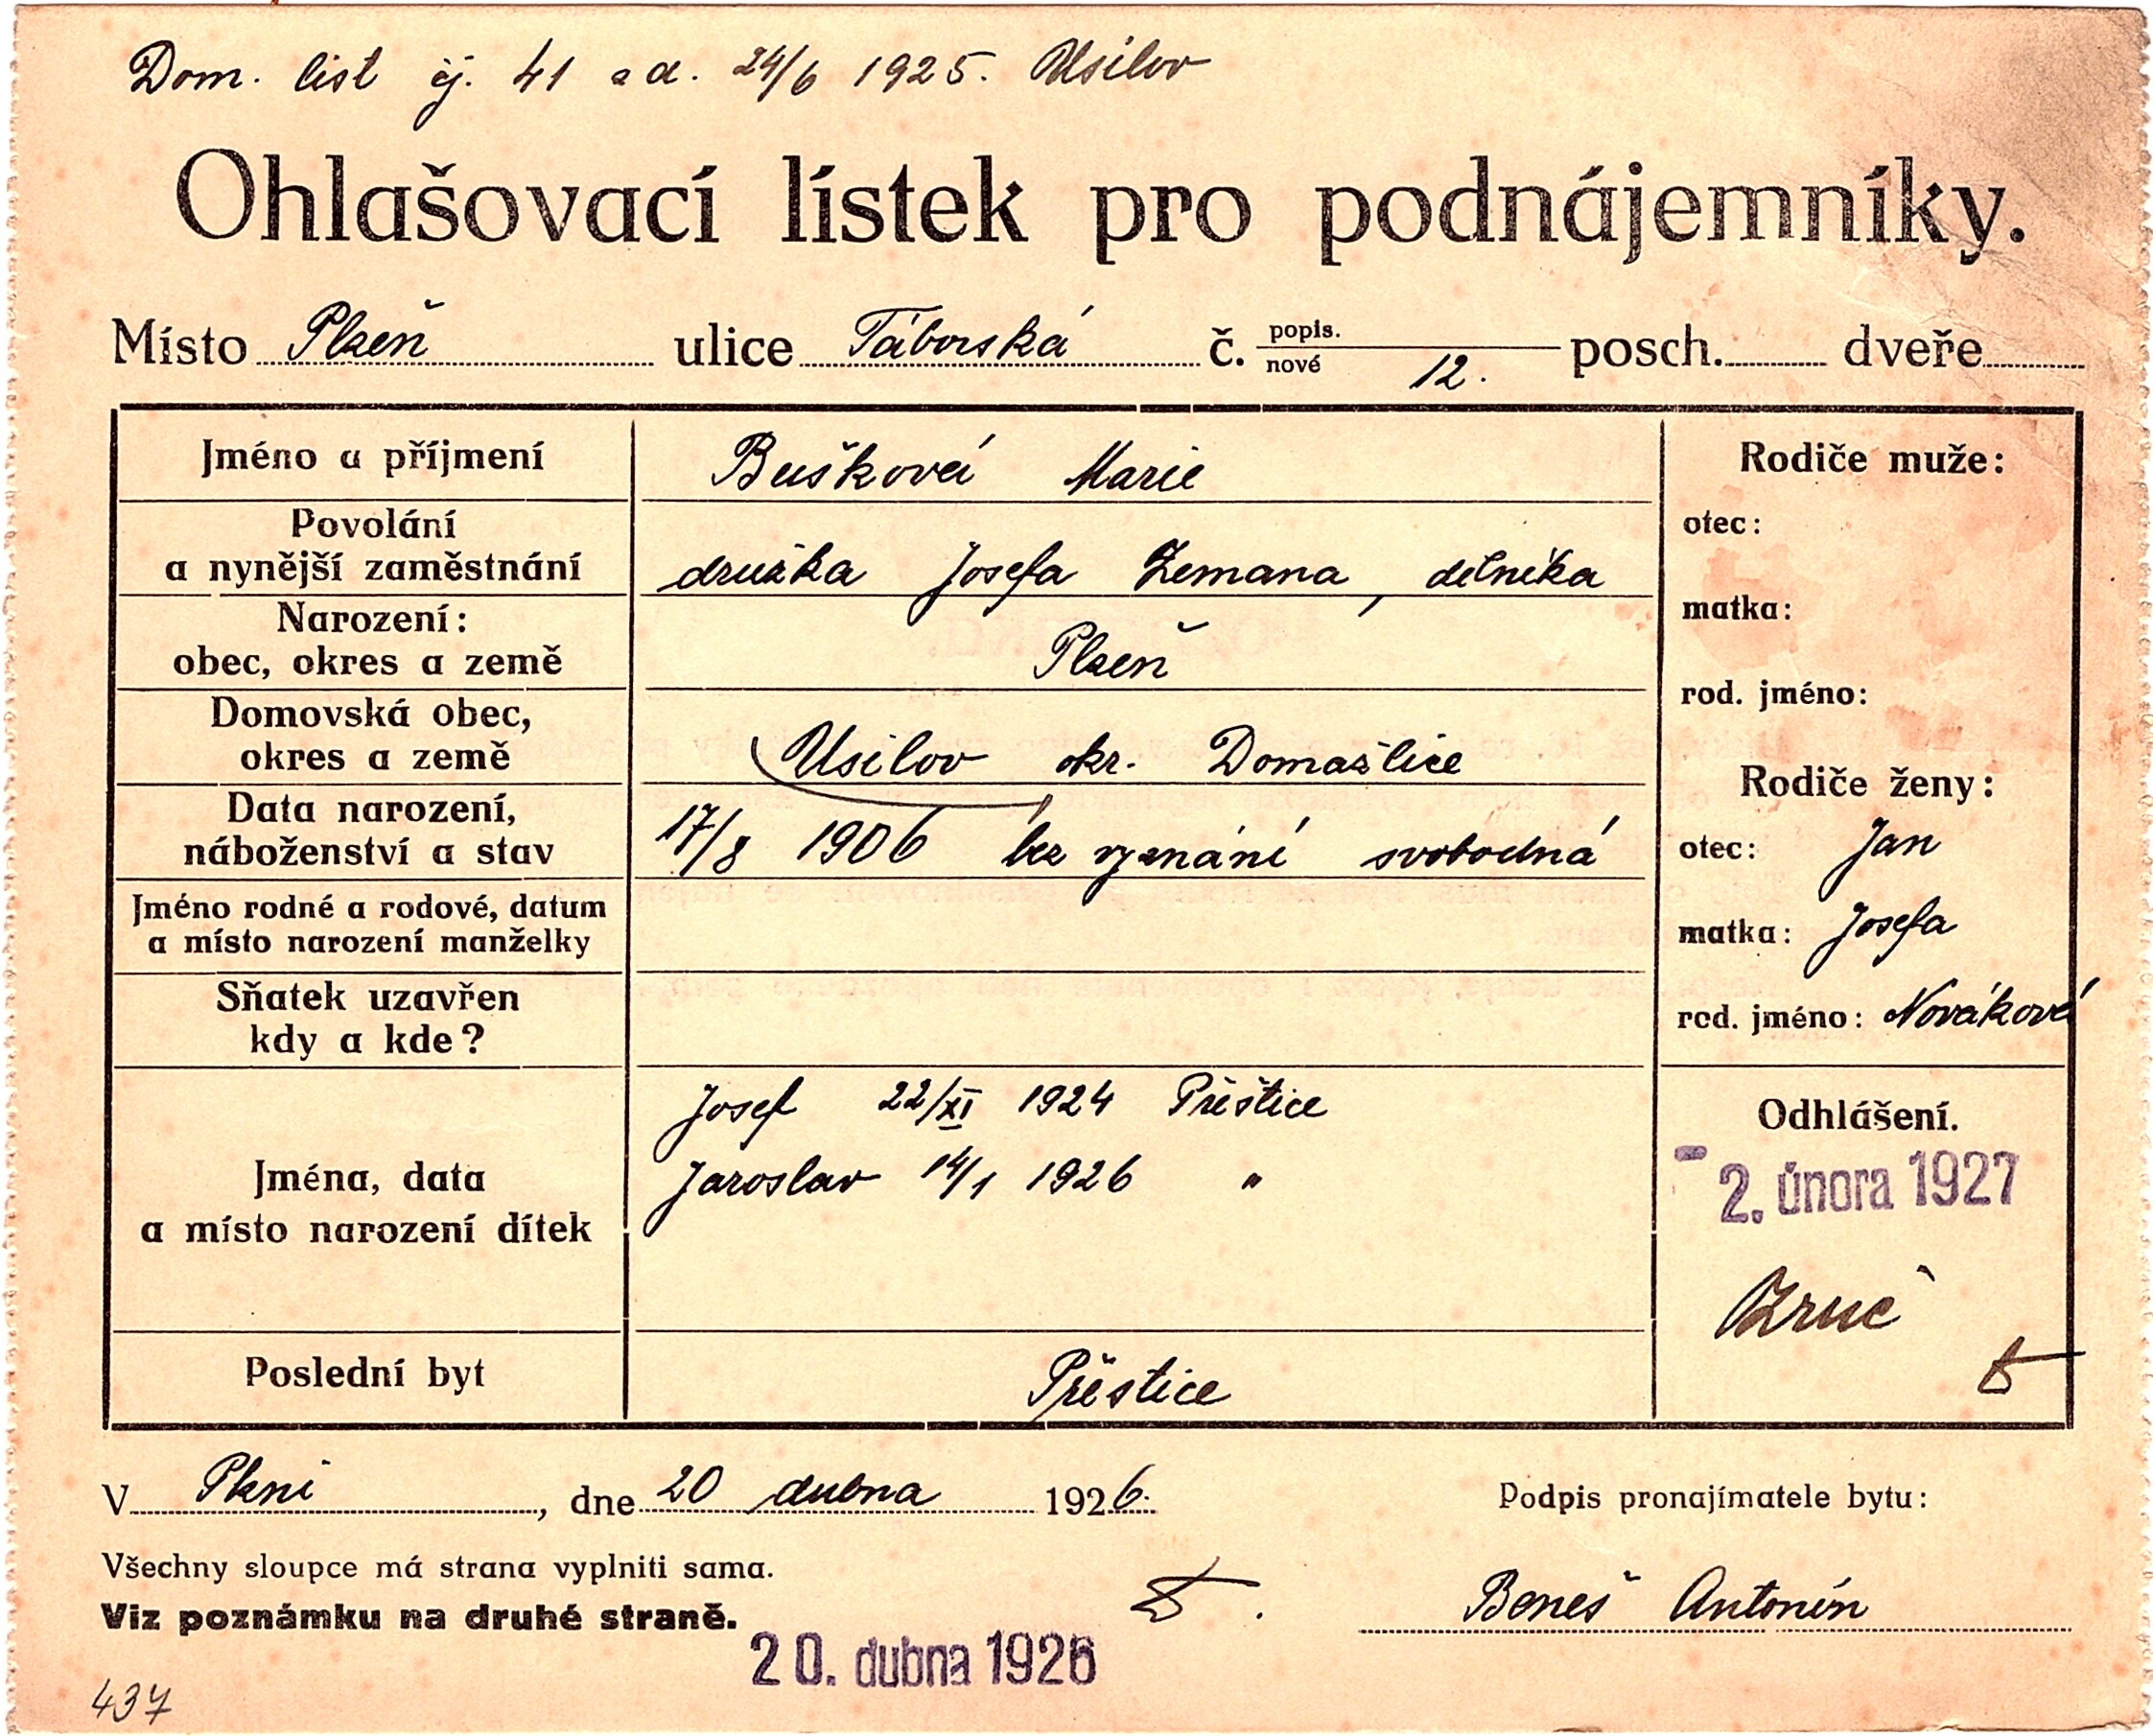 Dom. list čj. 41 ad. 24/6 1925. Úsilov
Ohlašovací lístek pro podnájemníky.
Místo Plzeň ulice Táborská č. popis. nové 12. posch. dveře
Jméno a příjmení Bušková Marie
Povolání
a nynější zaměstnání družka Josefa Zemana, dělníka
Narození:
obec, okres a země Plzeň
Domovská obec,
okres a země Úsilov okr. Domažlice
Data narození,
náboženství a stav 17/8 1906 bez vyznání svobodná
Jméno rodné a rodové, datum
a místo narození manželky
Sňatek uzavřen
kdy a kde?
Jména, data
a místo narození dítek
Josef 22/XI 1924 Přeštice
Jaroslav 14/1 1926 "
Poslední byt Přeštice
Rodiče muže:
otec:
matka:
rod. jméno:
Rodiče ženy:
otec: Jan
matka: Josefa
rod. jméno: Nováková
Odhlášení.
- 2. února 1927
Zruč
V Plzni, dne 20 dubna 1926.
Podpis pronajímatele bytu:
Všechny sloupce má strana vyplniti sama.
Viz poznámku na druhé straně.
Beneš Antonín
20. dubna 1926
437